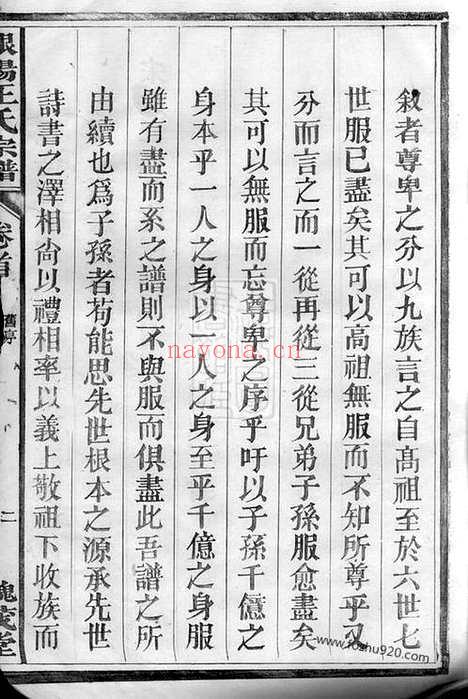 敘者尊卑之分以九族言之自髙祖至於六世七
世服已盡矣其可以高祖無服而不知所尊乎又
分而言之而一從再從三從兄弟子孫服愈盡矣
其可以無服而忘尊卑之序乎吁以子孫千億之
身本乎一人之身以一人之身至乎千億之身服
雖有盡而系之譜則不與服而俱盡此吾譜之所
由續也爲子孫者苟能思先世根本之源承先世
詩書之澤相尙以禮相率以義上敬祖下收族而
陽王氏宗譜
卷首
舊序
二
槐茂堂
nayona.cn
www.foshu920.com